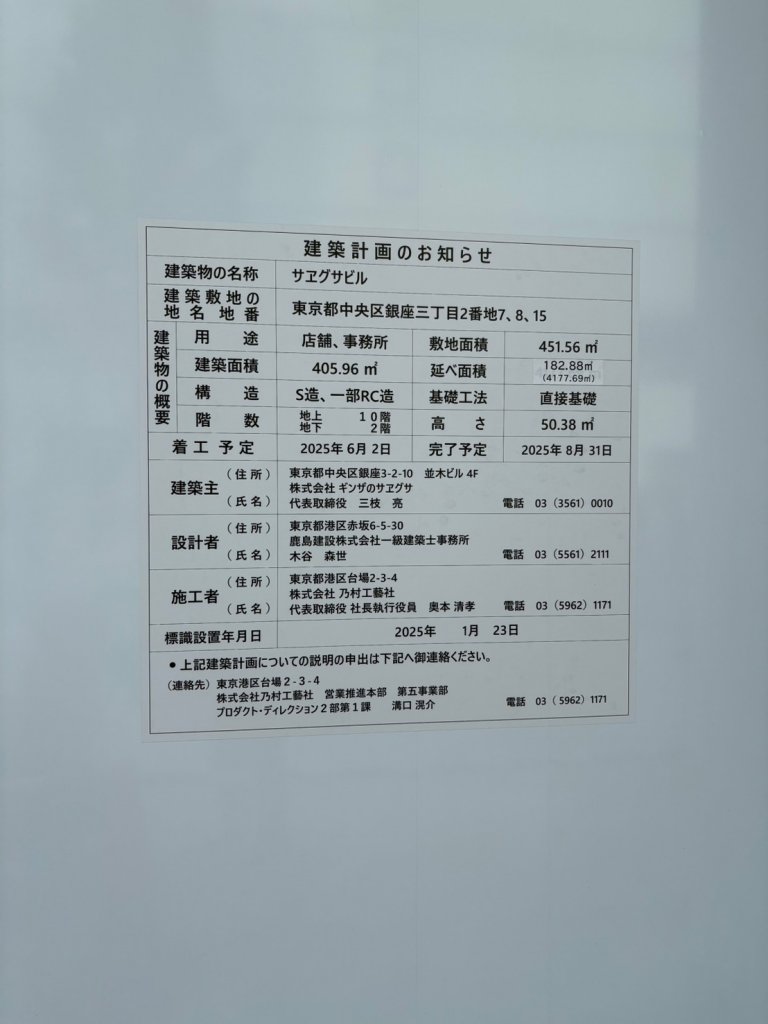 建築計画のお知らせ
建築物の名称 サヱグサビル
建築敷地の地名地番 東京都中央区銀座三丁目2番地7、8、15
建築物の概要
用途 店舗、事務所 敷地面積 451.56 ㎡
建築面積 405.96 ㎡ 延べ面積 182.88㎡ (4177.69㎡)
構造 S造、一部RC造 基礎工法 直接基礎
階数 地上 10階 地下 2階 高さ 50.38 ㎡
着工予定 2025年 6月 2日 完了予定 2025年 8月 31日
建築主 (住所) 東京都中央区銀座3-2-10 並木ビル 4F
株式会社 ギンザのサヱグサ
(氏名) 代表取締役 三枝 亮 電話 03 (3561) 0010
設計者 (住所) 東京都港区赤坂6-5-30
鹿島建設株式会社一級建築士事務所
(氏名) 木谷 森世 電話 03 (5561) 2111
施工者 (住所) 東京都港区台場2-3-4
株式会社 乃村工藝社
(氏名) 代表取締役 社長執行役員 奥本 清孝 電話 03 (5962) 1171
標識設置年月日 2025年 1月 23日
●上記建築計画についての説明の申出は下記へ御連絡ください。
(連絡先) 東京港区台場2-3-4
株式会社乃村工藝社 営業推進本部 第五事業部
プロダクト・ディレクション2部第1課 溝口 滉介 電話 03 (5962) 1171